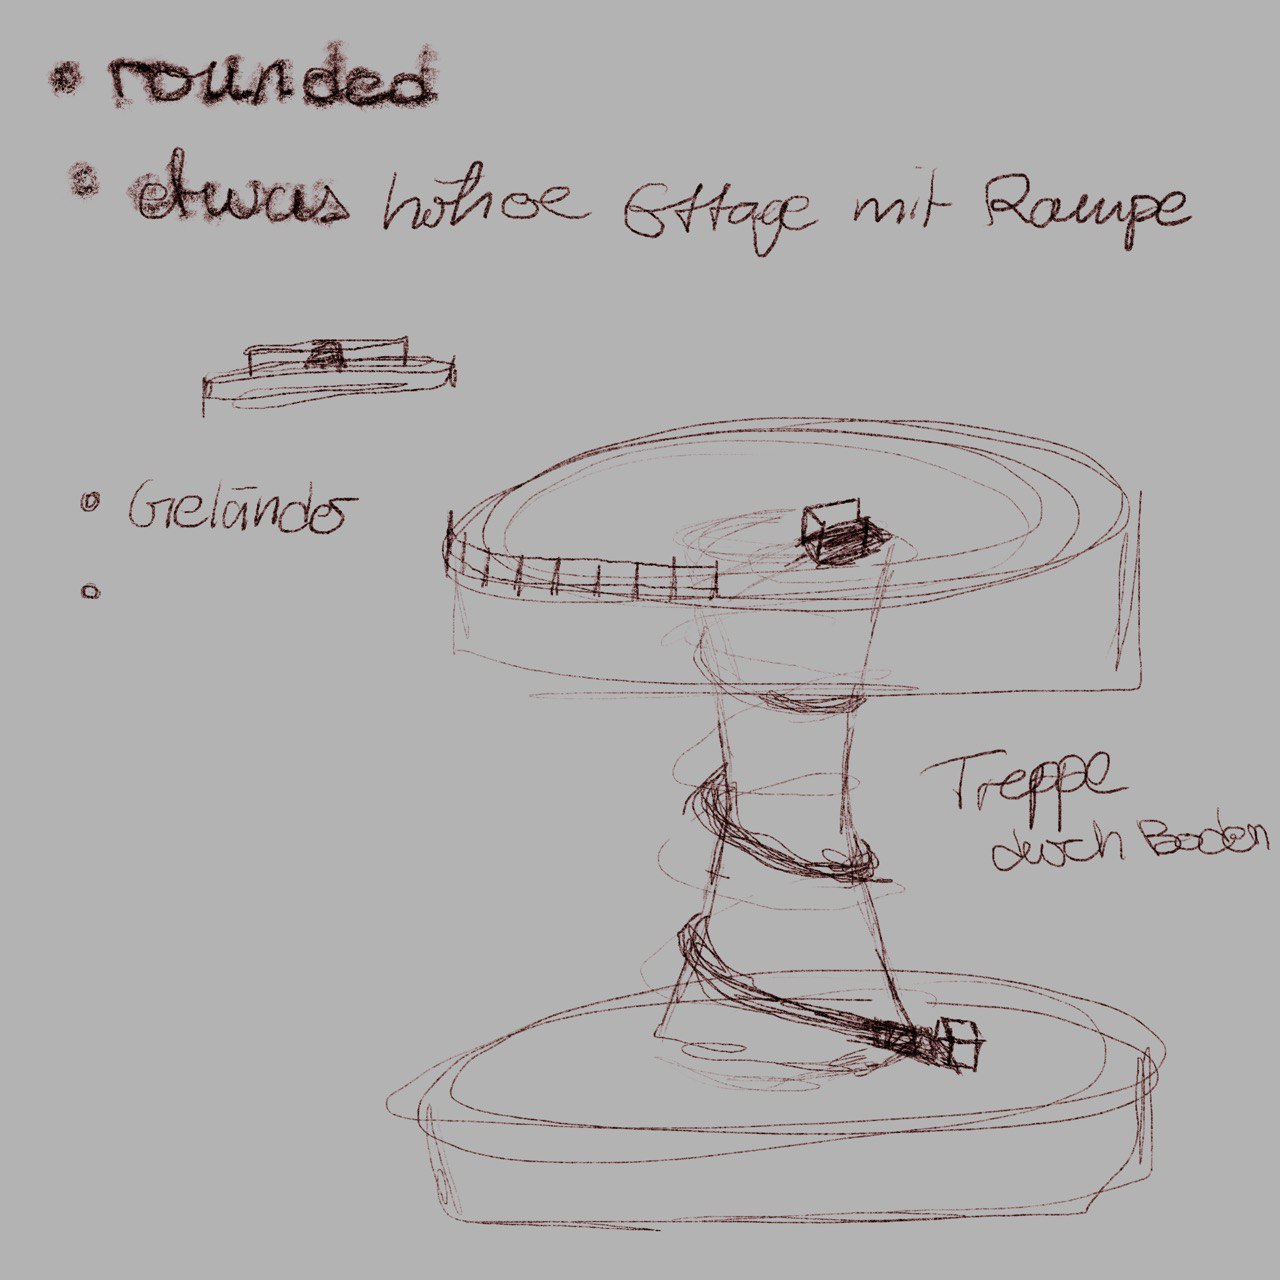 • rounded
• etwas höhoe Ettage mit Rampe
• Geländer
Treppe
durch Boden